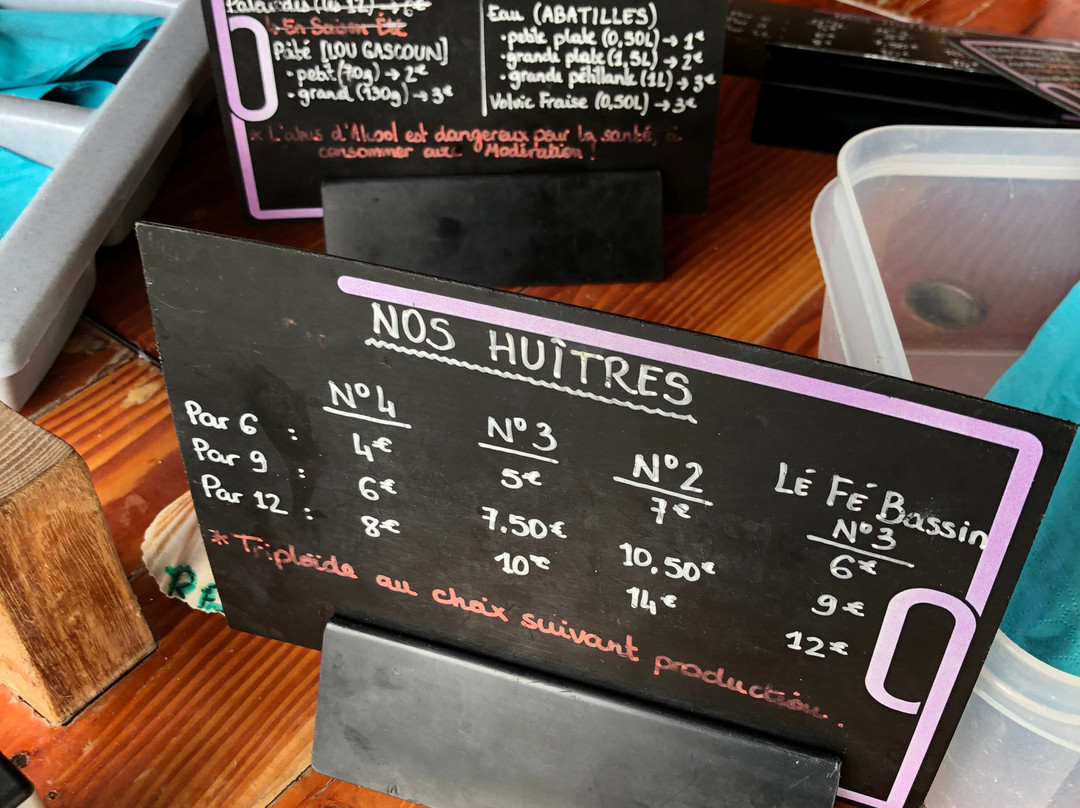 Palourdes (les 12) → 6€
↳ En Saison Été
Pâté [LOU GASCOUN]
• petit (70g) → 2€
• grand (130g) → 3€
Eau (ABATILLES)
• petite plate (0,50L) → 1€
• grande plate (1,5L) → 2€
• grande pétillante (1L) → 3€
Volvic Fraise (0,50L) → 3€
* L'abus d'Alcool est dangereux pour la santé, à
consommer avec Modération !
NOS HUÎTRES
N°4 N°3 N°2 LÉ FÉ Bassin N°3
Par 6 : 4€ 5€ 7€ 6€
Par 9 : 6€ 7.50€ 10,50€ 9€
Par 12 : 8€ 10€ 14€ 12€
* Triploïde au choix suivant production.